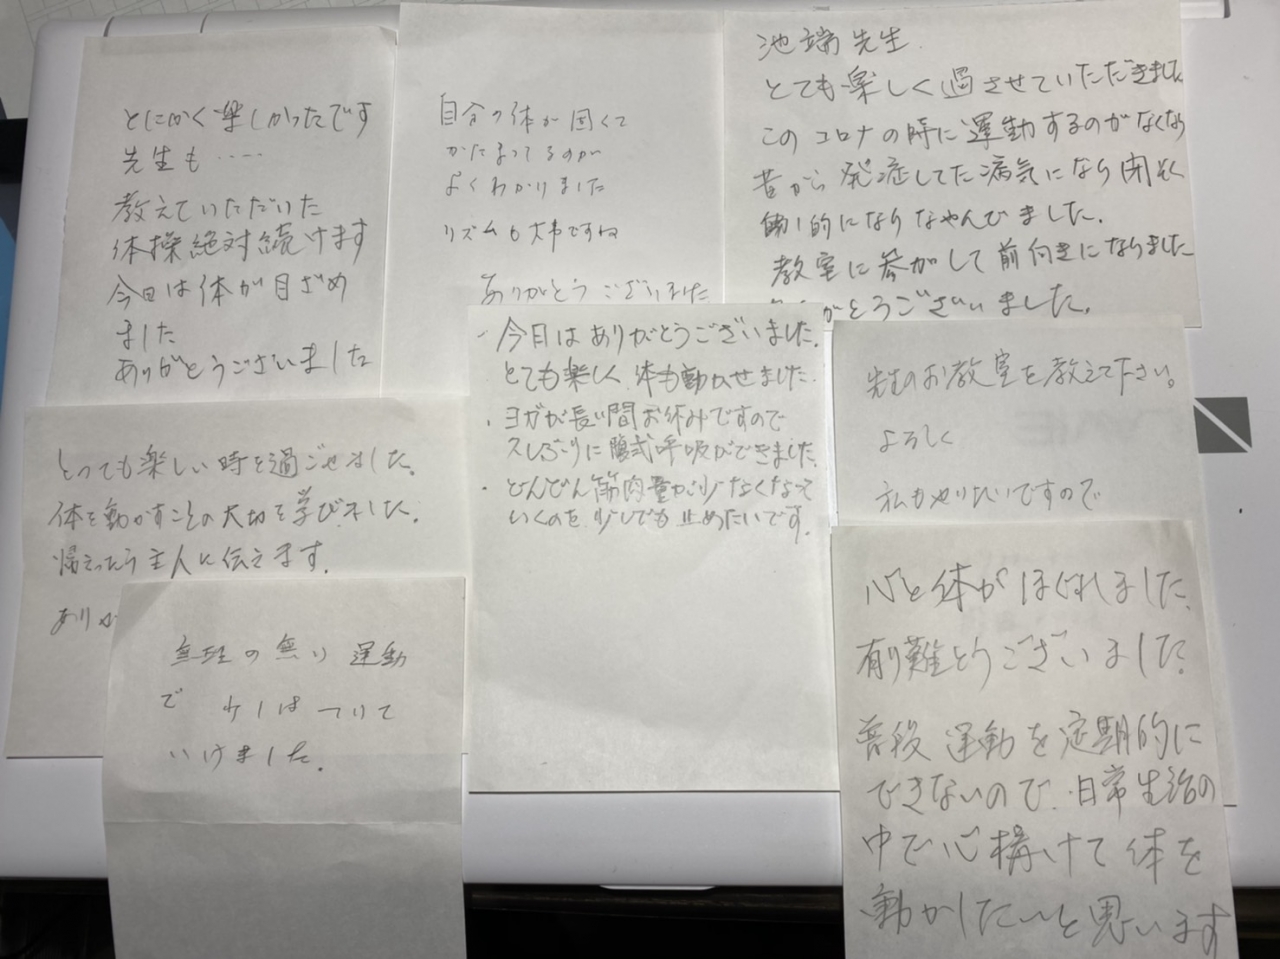 とにかく楽しかったです
先生も‥‥
教えていただいた
体操絶対続けます
今日は体が目ざめ
ました
ありがとうございました
自分の体が固くて
かたまってるのが
よくわかりました
リズムも大事ですね
ありがとうございました
池端先生
とても楽しく過させていただきました
このコロナの時に運動するのがなくなり
昔から発症してた病気になり閉そく
的になりなやんびました.
教室に参加して前向きになりました
がとうございました.
・今日はありがとうございました.
とても楽しく、体も動かせました.
・ヨガが長い間お休みですので
久しぶりに腹式呼吸ができました.
・どんどん筋肉量が少なくなって
いくのを、少しでも止めたいです.
先生のお教室を教えて下さい。
よろしく
私もやりたいですので
とっても楽しい時を過ごせました.
体を動かすことの大切を学びました.
帰えったら主人に伝えます.
ありが
無理の無い運動
で  はついて
いけました.
心と体がほぐれました.
有り難とうございました.
普段運動を定期的に
できないので、日常生活の
中で心構けて体を
動かしたいと思います